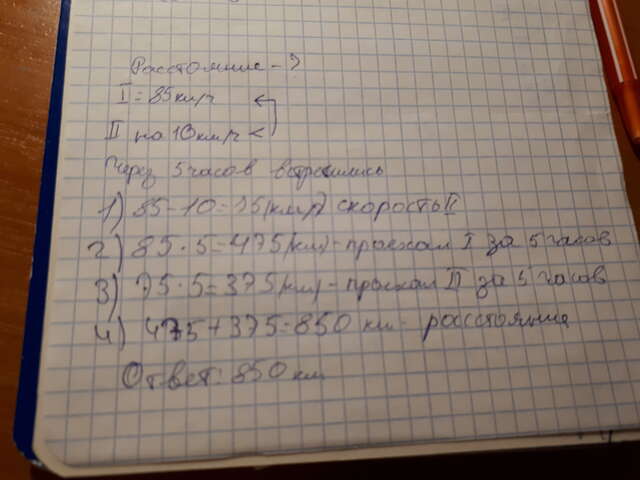 Расстояние - ?
I = 85км/ч
II на 10км/ч <
Через 5 часов встретились
1) 85-10=75(км/ч) скорость II
2) 85·5=475(км)-проехал I за 5 часов
3) 75·5=375(км)-проехал II за 5 часов
4) 475+375=850 км- расстояние
Ответ: 850 км